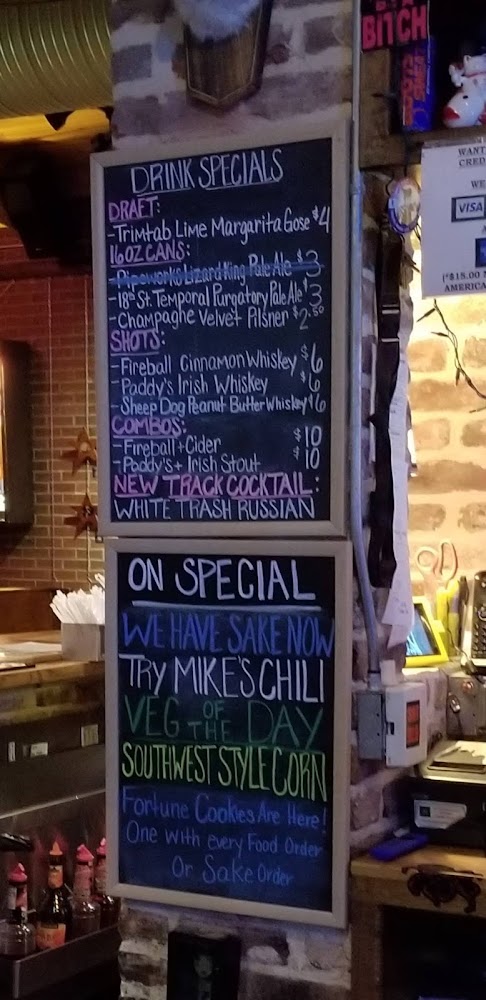 DRINK SPECIALS
DRAFT:
-Trimtab Lime Margarita Gose $4
16OZ CANS:
-Pipeworks Lizard King Pale Ale $3
-18th St. Temporal Purgatory Pale Ale $3
-Champaghe Velvet Pilsner $2.50
SHOTS:
-Fireball Cinnamon Whiskey $6
-Paddy's Irish Whiskey $6
-Sheep Dog Peanut Butter Whiskey $6
COMBOS:
-Fireball + Cider $10
-Paddy's + Irish Stout $10
NEW TRACK COCKTAIL:
WHITE TRASH RUSSIAN
ON SPECIAL
WE HAVE SAKE NOW
TRY MIKE'S CHILI
VEG OF THE DAY
SOUTHWEST STYLE CORN
Fortune Cookies Are Here!
One with every Food Order
Or Sake Order
BITCH
WANT
CRED
WE
VISA
A
(*$15.00
AMERICA